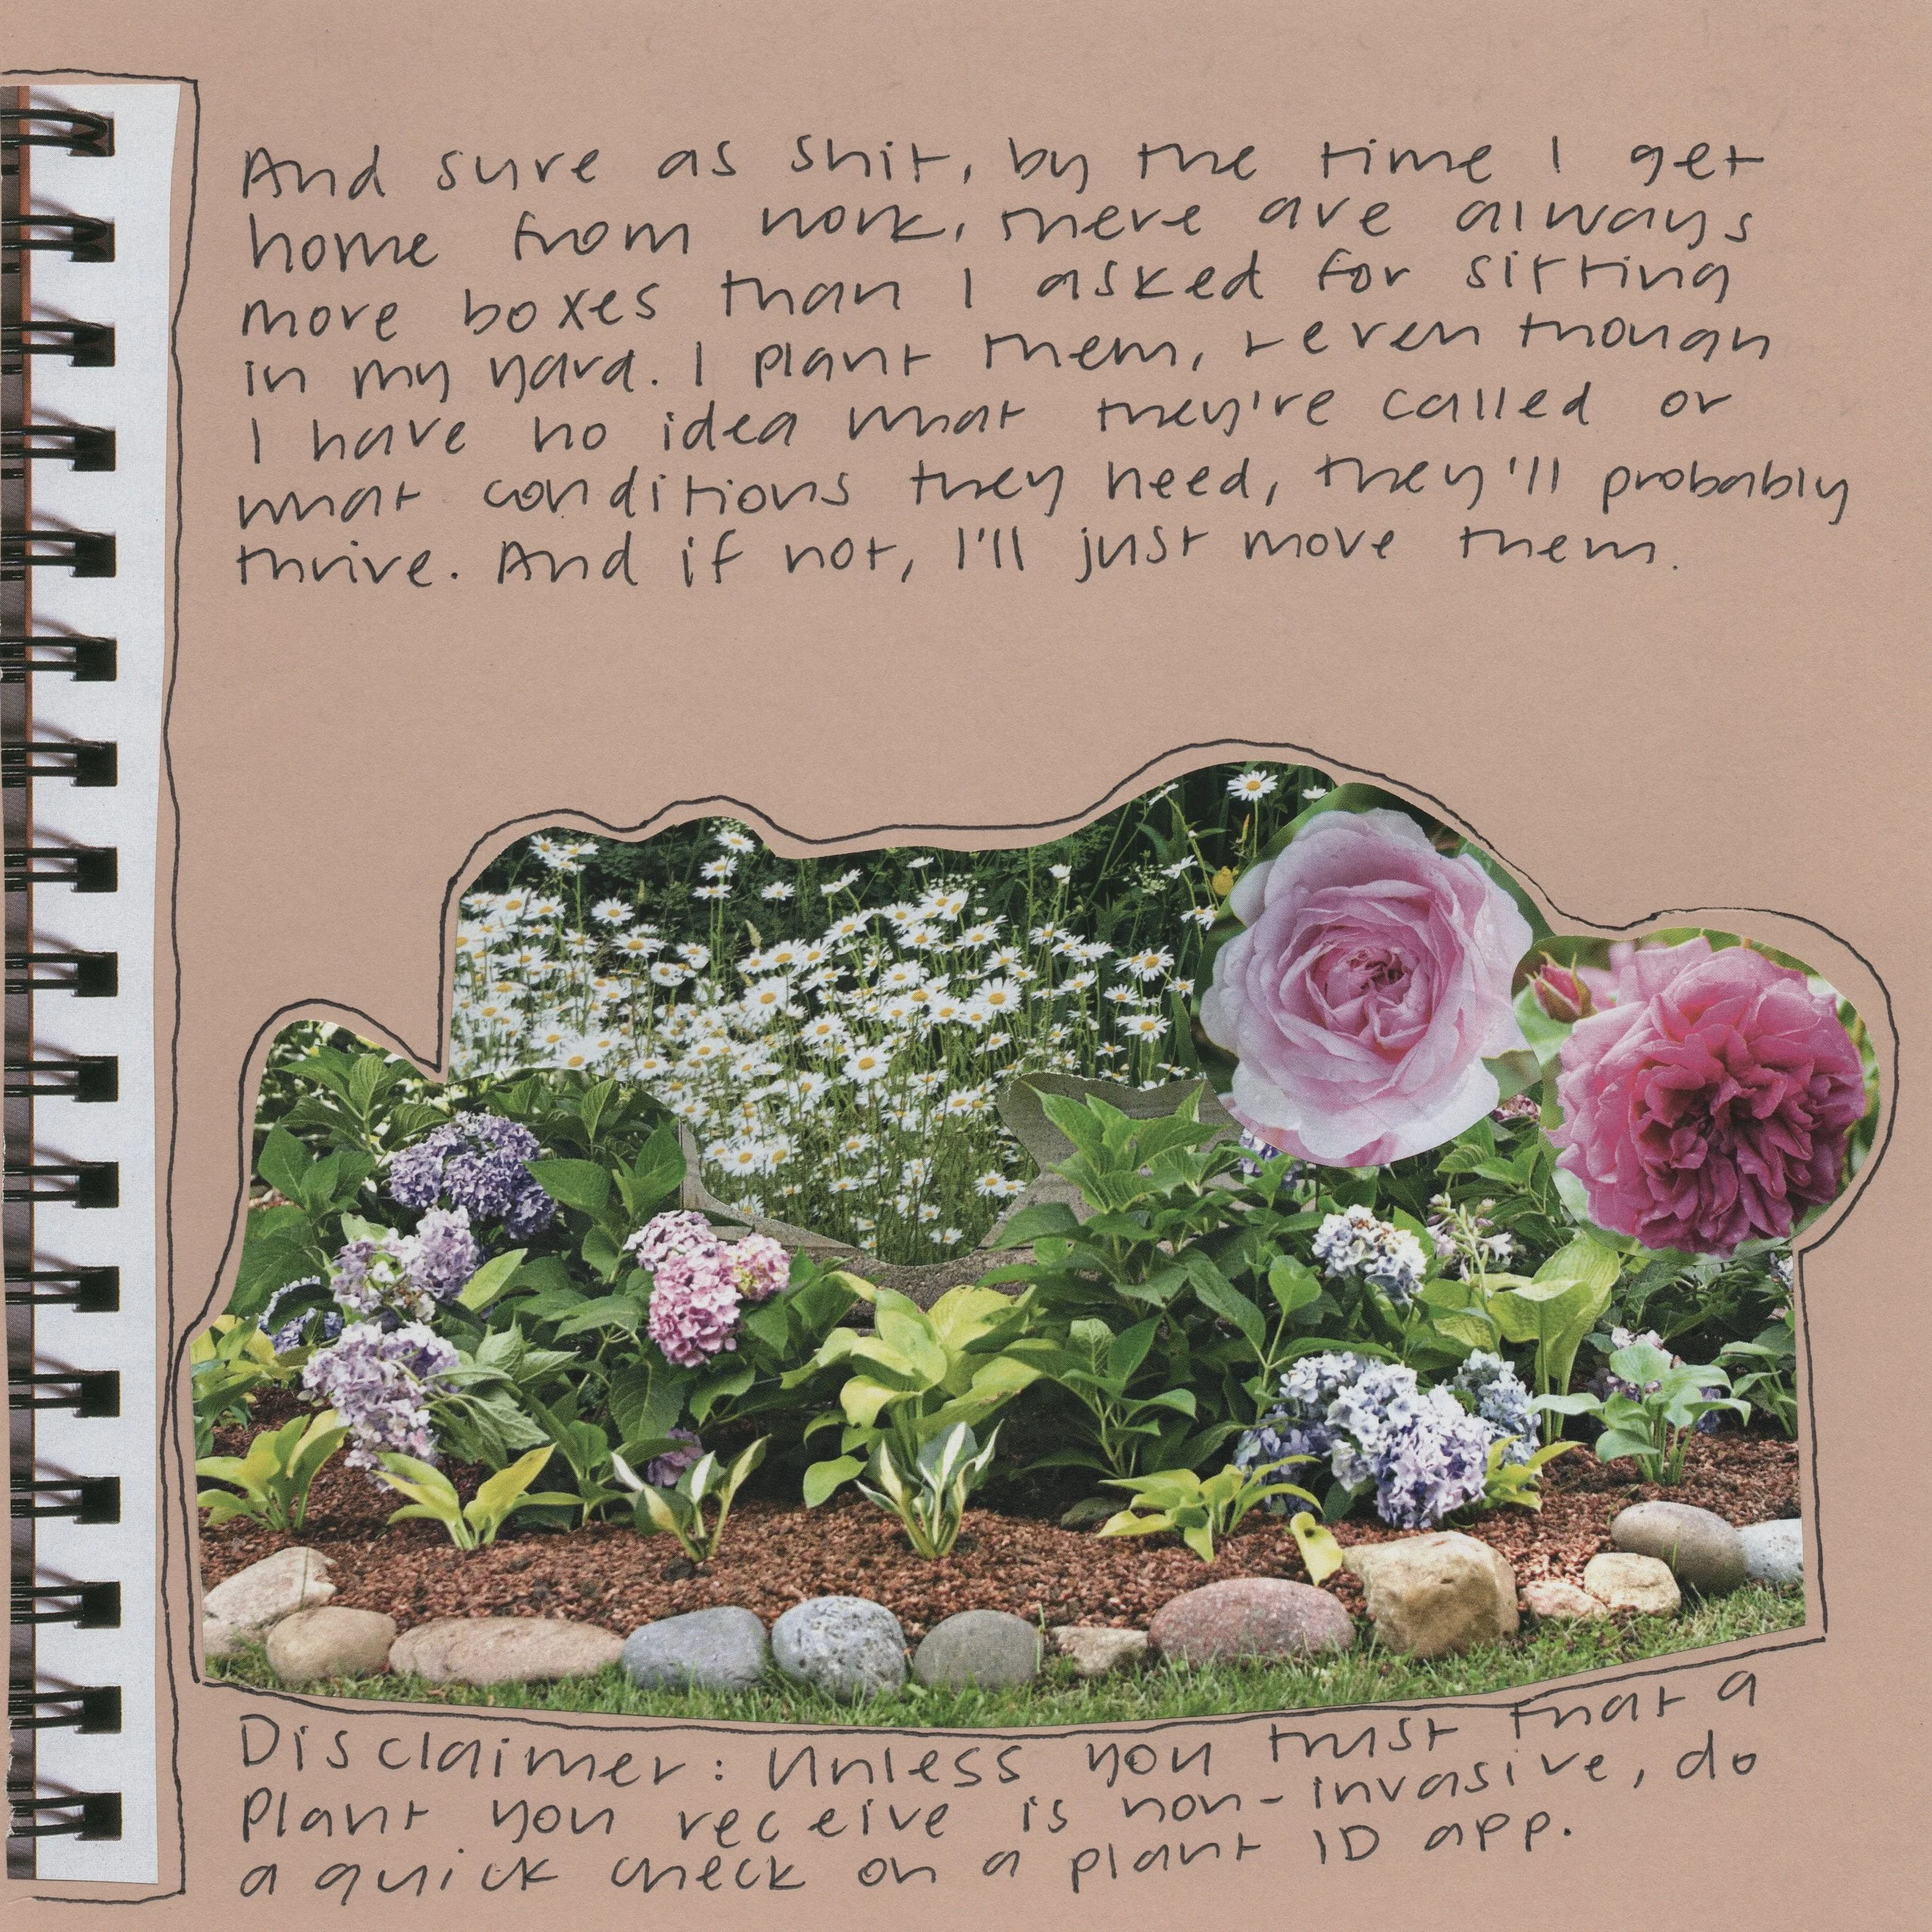 And sure as shit, by the time I get
home from work, there are always
more boxes than I asked for sitting
in my yard. I plant them, + even though
I have no idea what they're called or
what conditions they need, they'll probably
thrive. And if not, I'll just move them.
Disclaimer: Unless you trust that a
plant you receive is non-invasive, do
a quick check on a plant ID app.